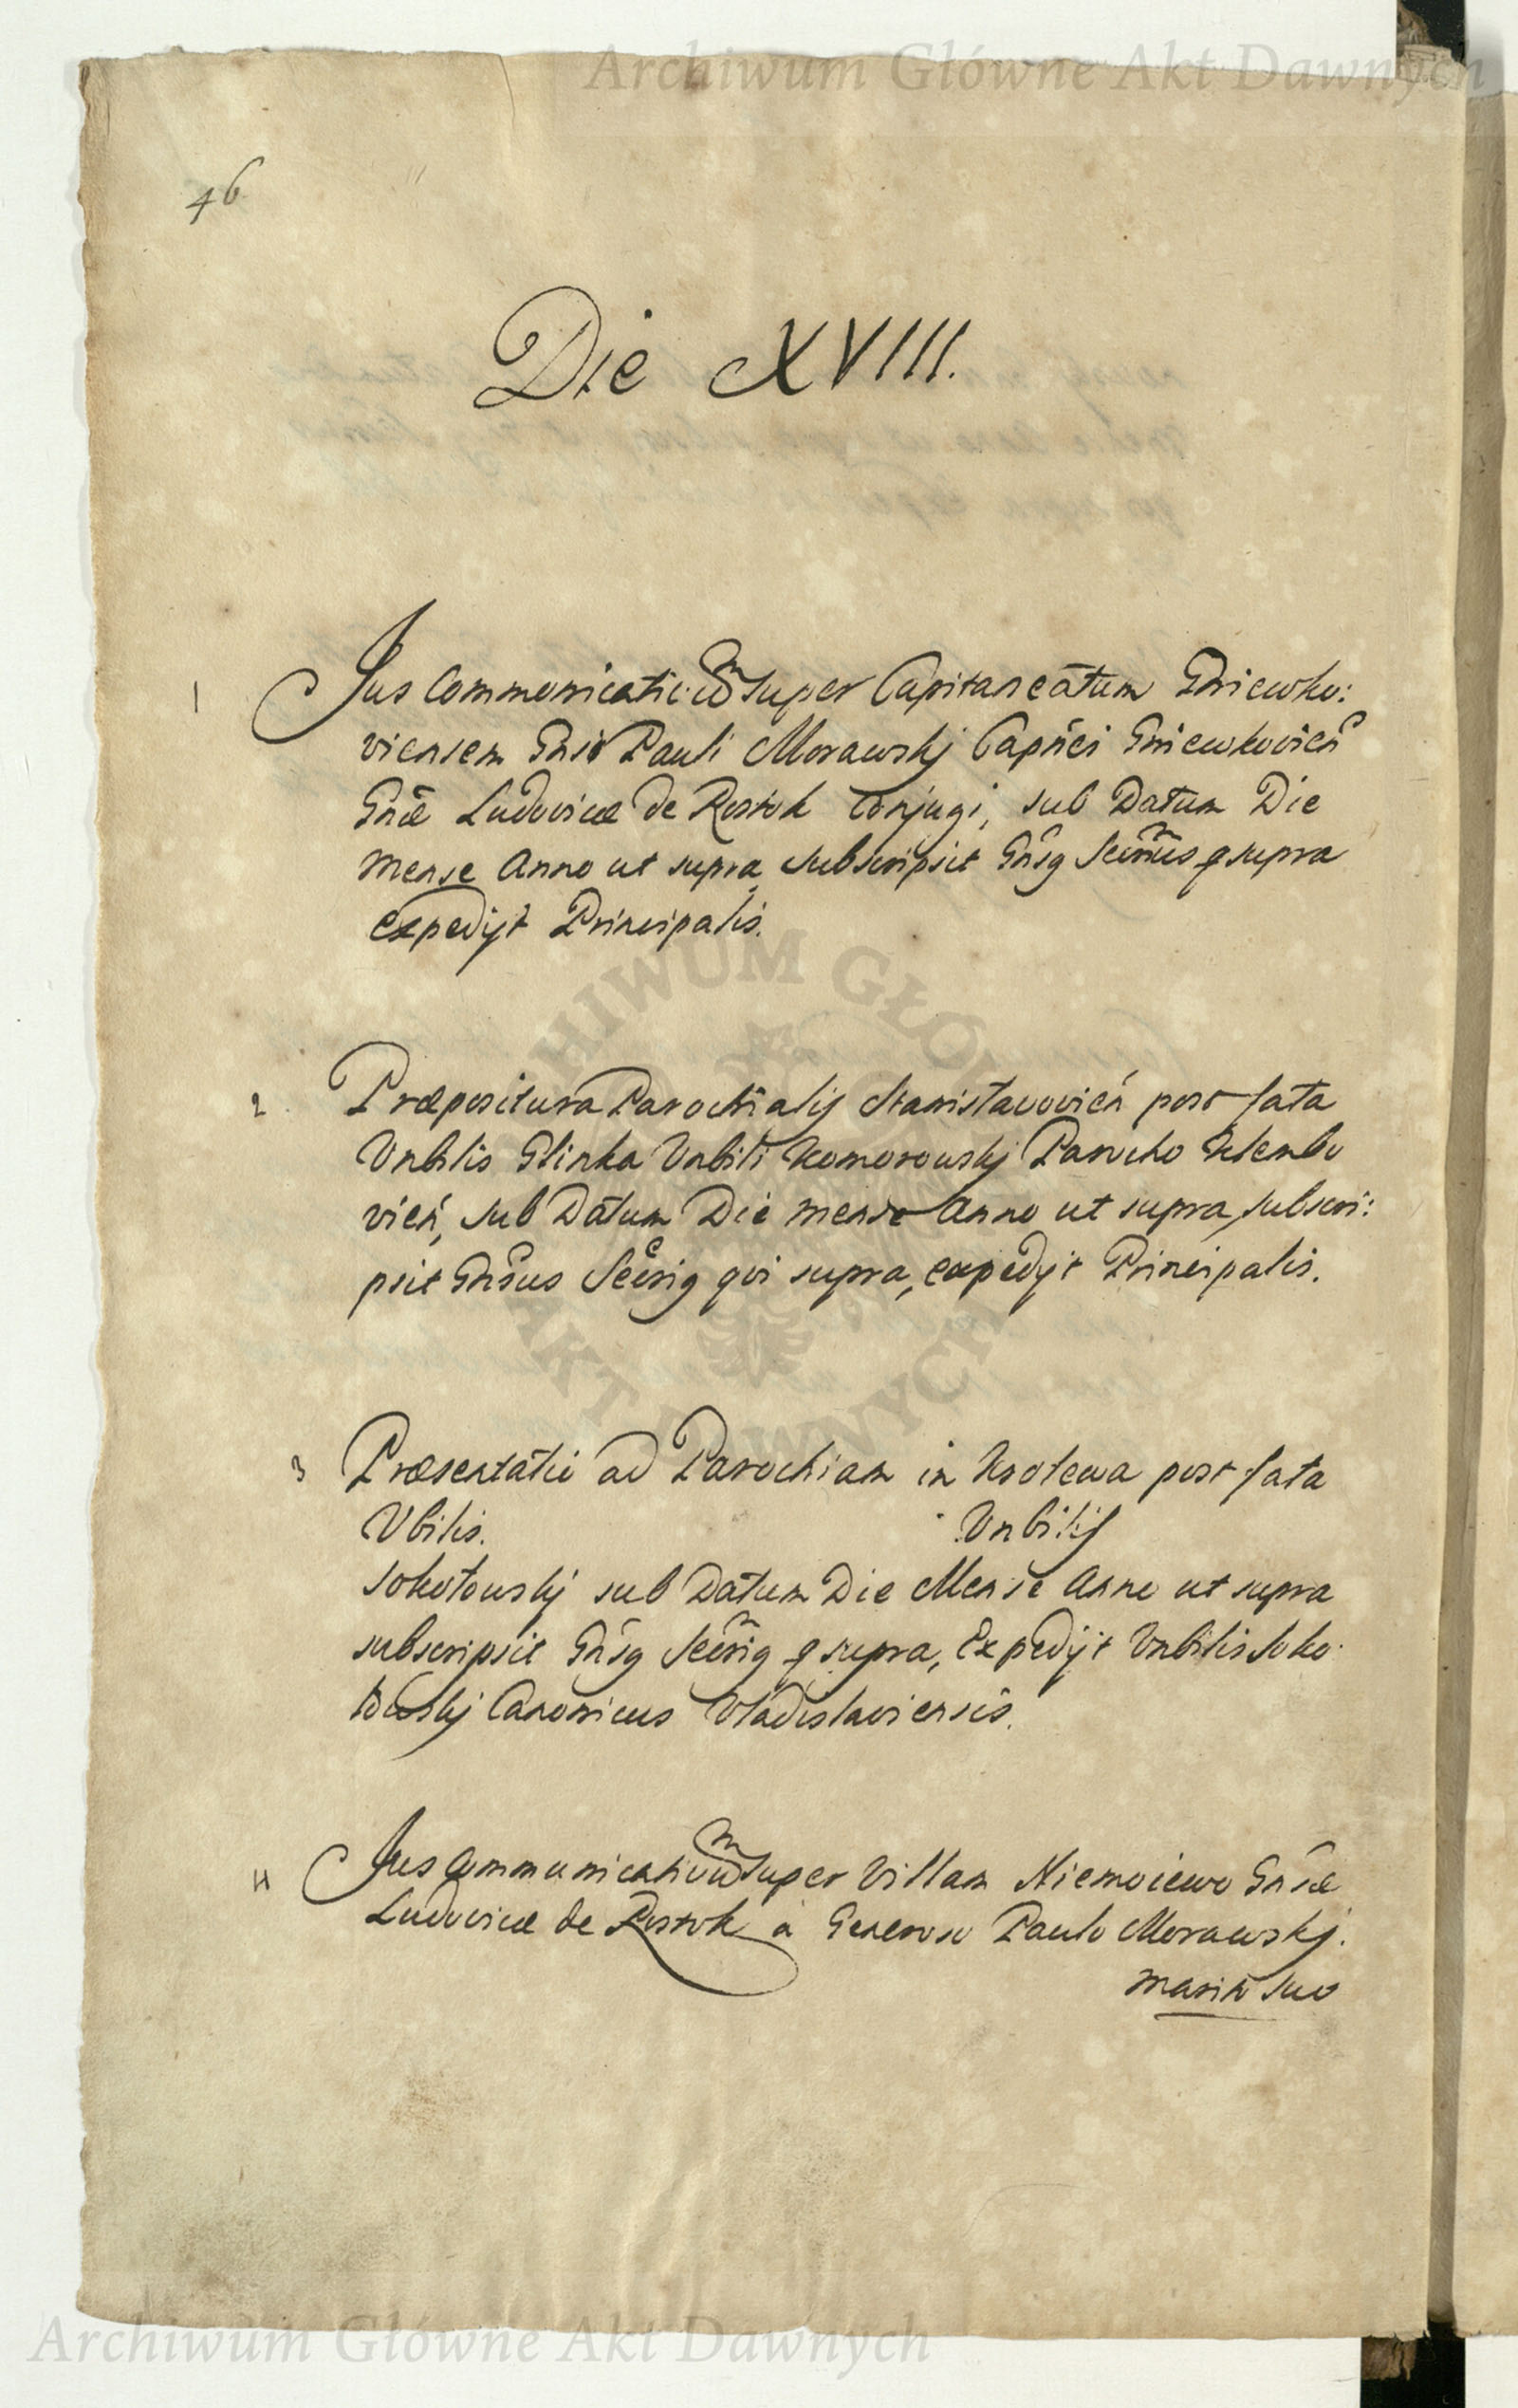 Archiwum Główne Akt Dawnych
46
Die XVIII.
1 Jus Communicativũm super Capitaneatum Gniewko:
viensem Gnsi Pauli Morawskj Capñei Gniewkovień
Gnæ Ludovicæ de Rostok Conjugi, sub Datum Die
Mense Anno ut supra, subscripsit Gñsq q supra
expedijt Principalis.
2 Præpositura Parochialis Stanisłavovień post fata
Vnbilis Glinka Vnbili Komorowskj Parocho
vień, sub Datum Die mense Anno ut supra, subscri:
psit Gnsus qvi supra, expedijt Principalis.
3 Præsentatio ad Parochiam in post fata
Vbilis. Vnbilis
Sokołowskj sub Datum Die Mense Anno ut supra
subscripsit Gñsq q supra, Expedijt Vnbilis Soko:
łowskj Canonicus Vladislaviensis.
4 Jus Communicativũm super Villam Niemoiewo Gnsæ
Ludovicæ de Rostok à Generoso Paulo Morawskj.
marito suo
Archiwum Główne Akt Dawnych